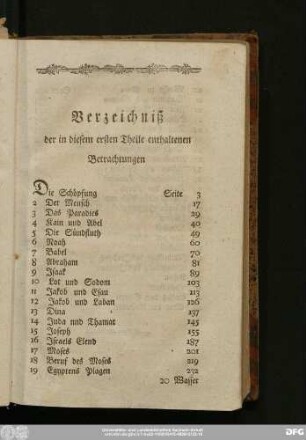 Verzeichniß
der in diesem ersten Theile enthaltenen
Betrachtungen
Die Schöpfung Seite 3
2 Der Mensch 17
3 Das Paradies 29
4 Kain und Abel 40
5 Die Sündfluth 49
6 Noah 60
7 Babel 70
8 Abraham 81
9 Isaak 89
10 Lot und Sodom 103
11 Jakob und Esau 113
12 Jakob und Laban 126
13 Dina 137
14 Juda und Thamar 145
15 Joseph 155
16 Israels Elend 187
17 Moses 201
18 Beruf des Moses 219
19 Egyptens Plagen 232
20 Wasser